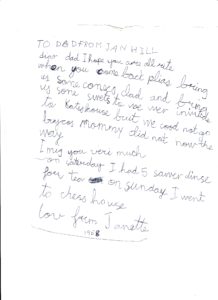 TO DAD FROM JAN HILL
dear dad I hope you are all rite
when you come back plias bring
us some comics dad and bring
us some swets to we wer invite
to Katys house but we cood not go
becos mommy did not now the
way
I mis you verii much
on saturday I had 5 sawer
for tea on sunday I went
to chess house
Low from Janette
1958